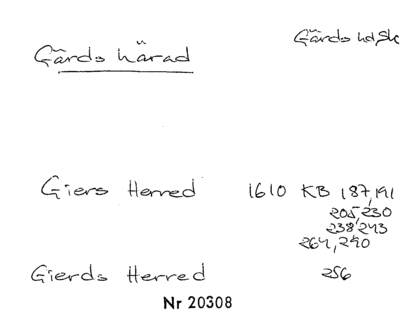 Gärds härad
Gärds hd, Sk
Giers Herred 1610 KB 187, 191
205, 230
238, 243
264, 290
Gierds Herred 256
Nr 20308